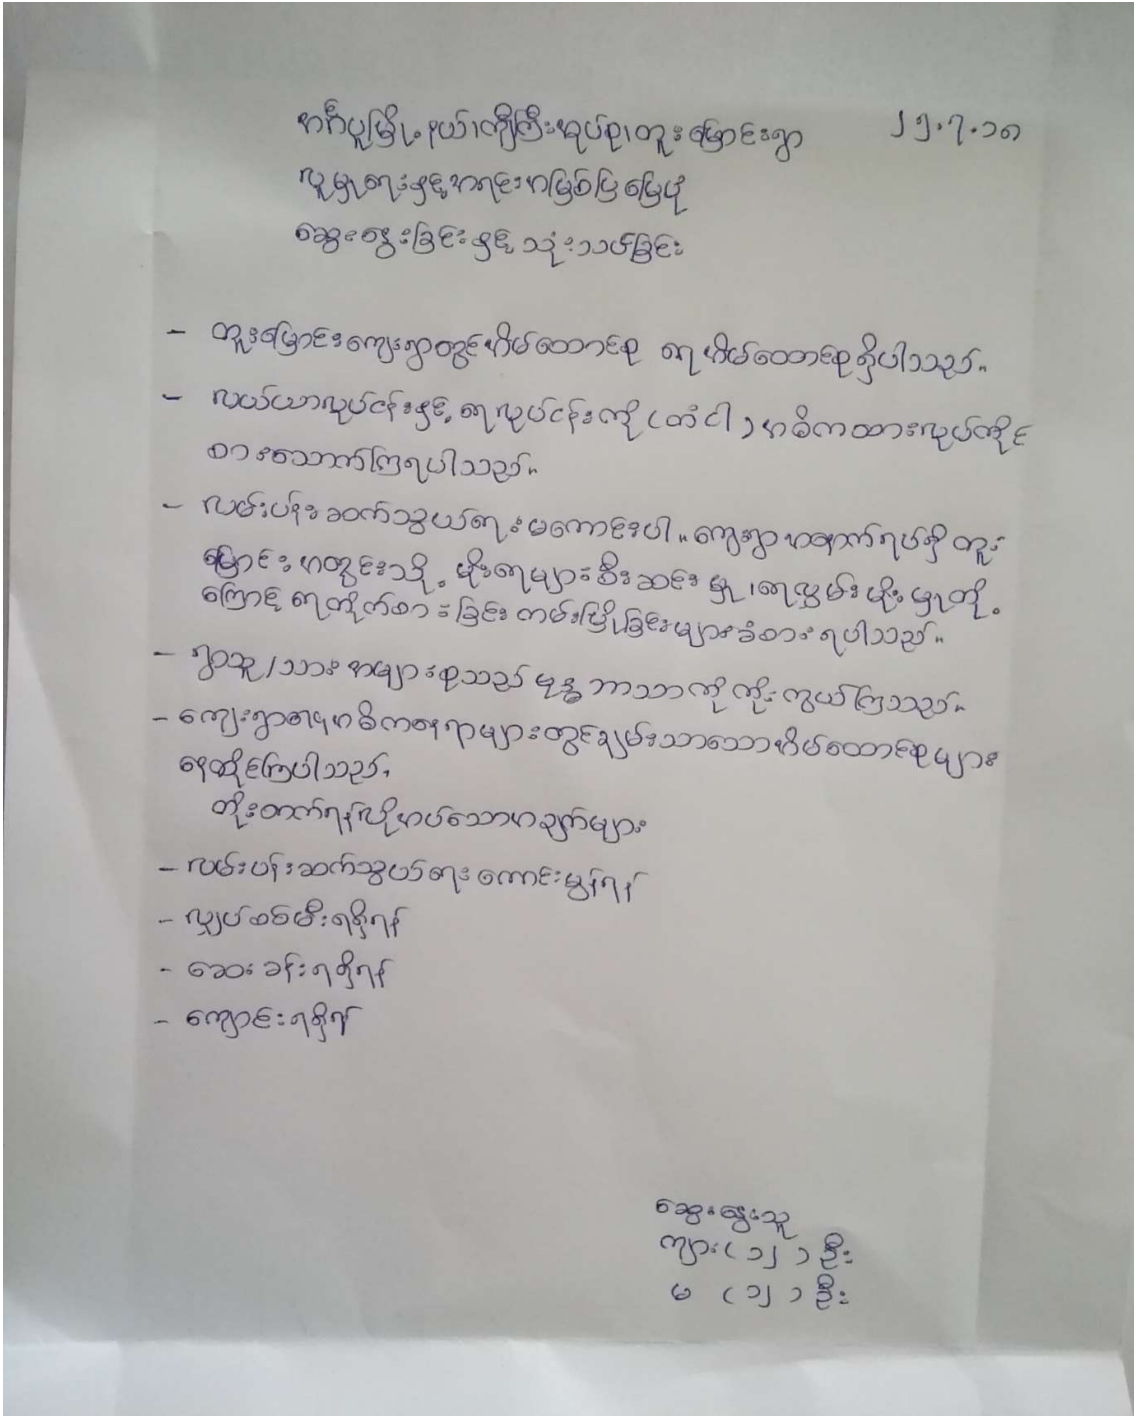 အင်္ဂပူမြို့နယ်၊ကြီကြီးအုပ်စု၊တူးမြောင်းရွာ ၂၅.၇.၁၈
လူမှုရေးနှင့်အရင်းအမြစ်ပြမြေပုံ
ဆွေးနွေးခြင်းနှင့်သုံးသပ်ခြင်း
- တူးမြောင်းကျေးရွာတွင်အိမ်ထောင်စု ၈၅အိမ်ထောင်စုရှိပါသည်။
- လယ်ယာလုပ်ငန်းနှင့်ရေလုပ်ငန်းကို (တံငါ) အဓိကထားလုပ်ကိုင်
စားသောက်ကြရပါသည်။
- လမ်းပန်းဆက်သွယ်ရေးမကောင်းပါ။ ကျေးရွာအနောက်ရပ်ရှိ တူး
မြောင်းအတွင်းသို့ မိုးရေများစီးဆင်းမှု၊ရေလွှမ်းမိုးမှုတို့
ကြောင့် ရေတိုက်စားခြင်းကမ်းပြိုခြင်းများခံစားရပါသည်။
- ရွာသူ/သားအများစုသည် ဗုဒ္ဓဘာသာကိုကိုးကွယ်ကြသည်။
- ကျေးရွာ၏အဓိကနေရာများတွင်ချမ်းသာသောအိမ်ထောင်စုများ
နေထိုင်ကြပါသည်။
တိုးတက်ရန်လိုအပ်သောအချက်များ
- လမ်းပန်းဆက်သွယ်ရေးကောင်းမွန်ရန်
- လျှပ်စစ်မီးရရှိရန်
- ဆေးခန်းရရှိရန်
- ကျောင်းရရှိရန်
ဆွေးနွေးသူ
ကျား (၁၂) ဦး
မ (၁၂) ဦး